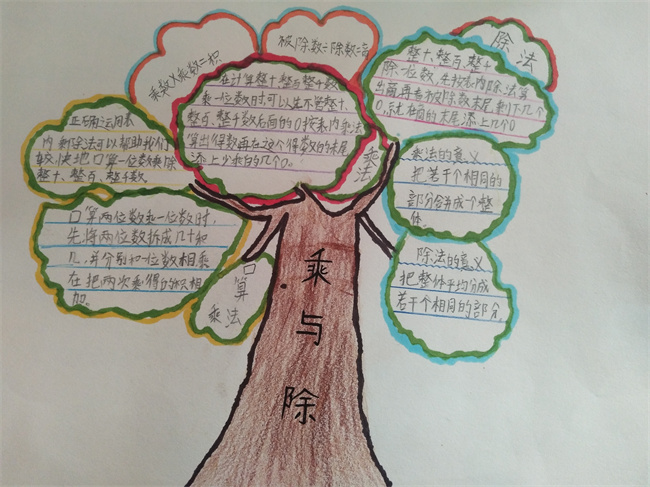 乘数×乘数=积
被除数÷除数=商
除法
整十、整百、整十
除一位数，先按表内除法算
出商，再看被除数末尾剩下几个
0，就在商的末尾添上几个0
在计算整十整百整千数
乘一位数时，可以先不管整十、
整百、整千数后面的0按表内乘法
算出得数再在这个得数的末尾
添上少乘的几个0。
乘法
正确运用表
内乘除法可以帮助我们
较快把口算一位数乘除
整十、整百、整千数
乘法的意义
把若干个相同的
部分合并成一个整
体
口算两位数乘一位数时，
先将两位数拆成几十和
几，并分别和一位数相乘
在把两次乘得的积相
加。
口算
乘法
除法的意义
把整体平均分成
若干个相同的部分
乘与除